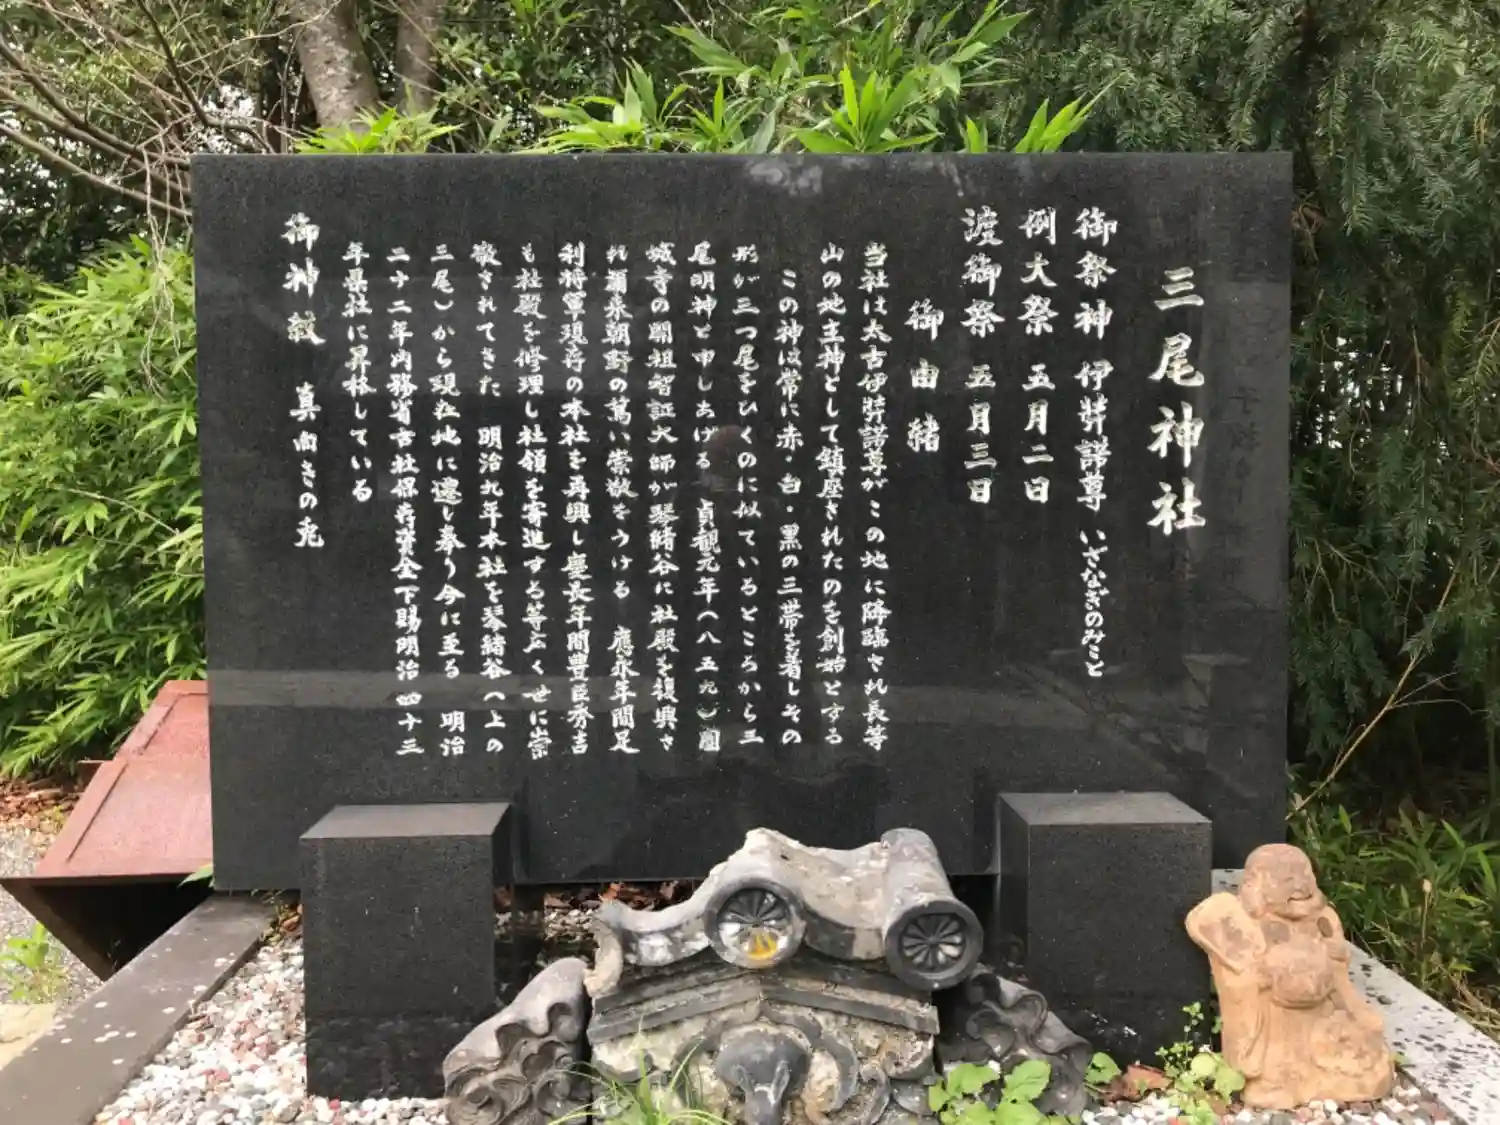 三尾神社
御祭神 伊弉諾尊 いざなぎのみこと
例大祭 五月二日
渡御祭 五月三日
御由緒
当社は太古伊弉諾尊がこの地に降臨され長等
山の地主神として鎮座されたのを創始とする
この神は常に赤・白・黒の三帯を着しその
形が三つ尾をひくのに似ているところから三
尾明神と申しあげる 貞観元年(八五九)園
城寺の開祖智証大師が琴緒谷に社殿を復興さ
れ爾来朝野の篤い崇敬をうける 應永年間足
利将軍現存の本社を再興し慶長年間豊臣秀吉
も社殿を修理し社領を寄進する等広くせに崇
敬されてきた 明治九年本社を琴緒谷(上の
三尾)から現在地に遷し奉り今に至る 明治
二十二年内務省古社保存資金下賜明治四十三
年県社に昇格している
御神紋 真向きの兎